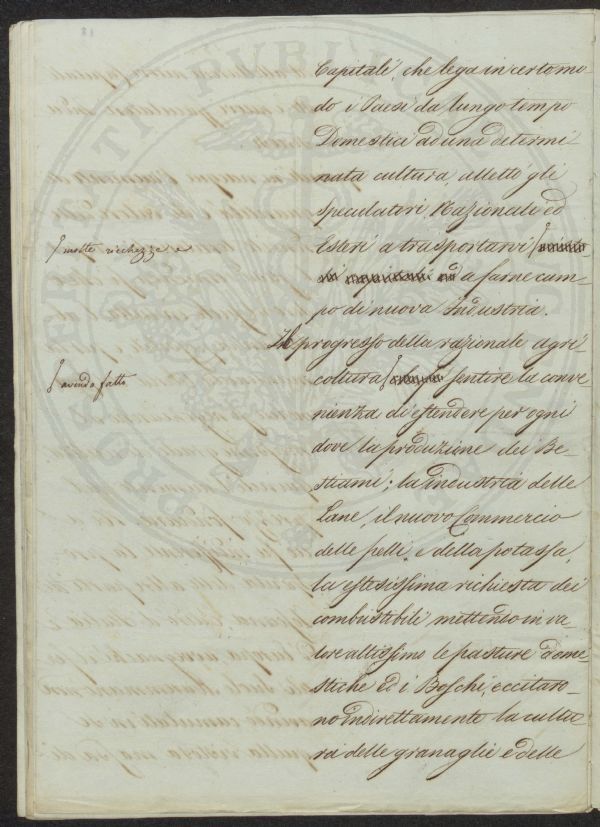 Capitali, che lega in certo mo-
do i Paesi da lungo tempo
Domestici ad una determi-
nata cultura, allettò gli
speculatori Nazionali ed
Esteri a trasportarvi
molte ricchezze e
a farne cam-
po di nuova Industria.
Il progresso della razionale agri-
coltura
avendo fatto
sentire la conve-
nienza di estendere per ogni
dove la produzione dei Be-
stiami; la industria delle
Lane, il nuovo Commercio
delle pelli, e della potassa,
la estesissima richiesta dei
combustibili mettendo in va-
lore altissimo le pasture dome-
stiche ed i Boschi, eccitaro-
no indirettamente la cultu-
ra delle granaglie e delle